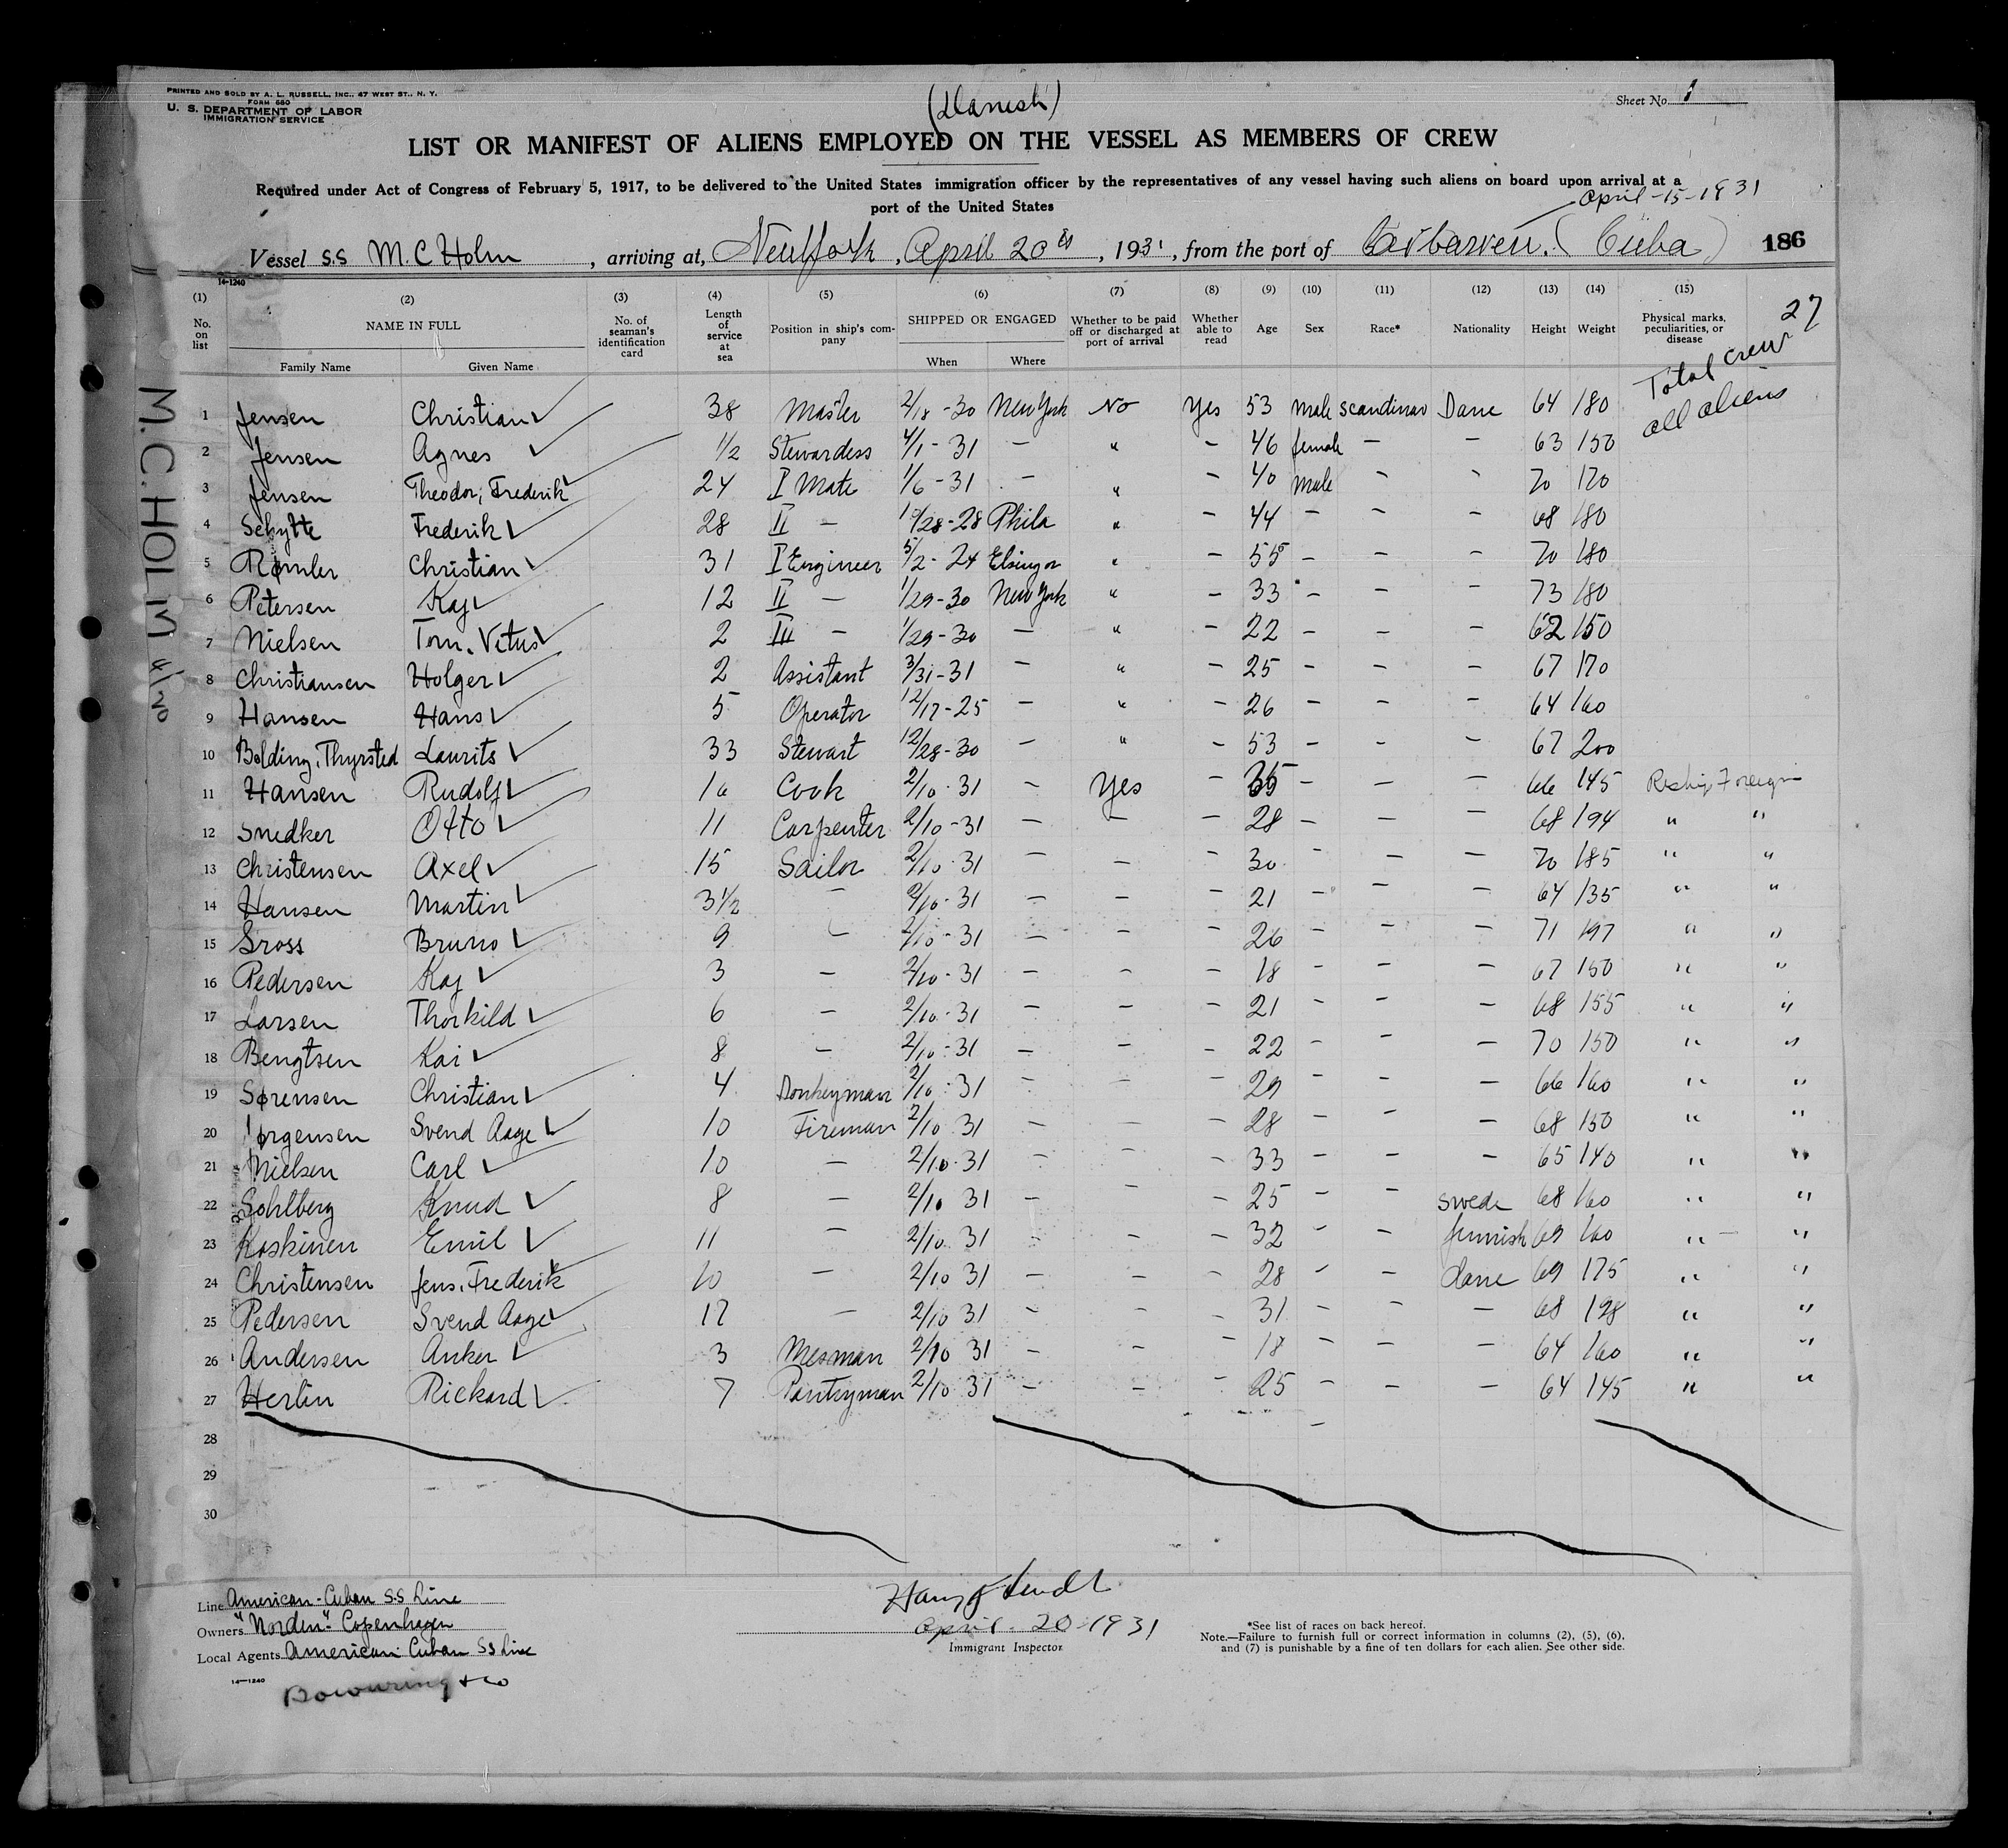 PRINTED AND SOLD BY A. L. RUSSELL, INC., 47 WEST ST., N. Y.
FORM 680
U. S. DEPARTMENT OF LABOR
IMMIGRATION SERVICE
(Danish)
Sheet No. 1
LIST OR MANIFEST OF ALIENS EMPLOYED ON THE VESSEL AS MEMBERS OF CREW
Required under Act of Congress of February 5, 1917, to be delivered to the United States immigration officer by the representatives of any vessel having such aliens on board upon arrival at a
port of the United States
April-15-1931
Vessel S.S M.C Holm, arriving at, New York, April 20th, 1931, from the port of (Cuba) 186
14-1240
(1) (2) (3) (4) (5) (6) (7) (8) (9) (10) (11) (12) (13) (14) (15)
No. on list NAME IN FULL Family Name Given Name No. of seaman's identification card Length of service at sea Position in ship's company SHIPPED OR ENGAGED When Where Whether to be paid off or discharged at port of arrival Whether able to read Age Sex Race* Nationality Height Weight Physical marks, peculiarities, or disease
27
Total crew
all aliens
1 Jensen Christian 38 Master 2/18-30 New York No Yes 53 male Scandinav Dane 64 180
2 Jensen Agnes 1/2 Stewardess 4/1-31 - " - 46 female - - 63 150
3 Jensen Theodor, Frederik 24 I Mate 1/6-31 - " - 40 male - - 70 170
4 Schytte Frederik 28 II - /28-28 Phila " - 44 - - - 68 180
5 Rømler Christian 31 I Engineer 5/2-24 Elsingor " - 55 - - - 70 180
6 Petersen Kaj 12 II - 1/29-30 New York " - 33 - - - 73 180
7 Nielsen Tom. Vitus 2 III - 1/29-30 - " - 22 - - - 62 150
8 Christiansen Holger 2 Assistant 3/31-31 - " - 25 - - - 67 170
9 Hansen Hans 5 Operator 12/17-25 - " - 26 - - - 64 160
10 Bolding, Thyrsted Laurits 33 Stewart 12/28-30 - " - 53 - - - 67 200
11 Hansen Rudolf 16 Cook 2/10-31 - Yes - 35 - - - 66 145 Reship Foreign
12 Snedker Otto 11 Carpenter 2/10-31 - - - 28 - - - 68 194 " "
13 Christensen Axel 15 Sailor 2/10-31 - - - 30 - - - 70 185 " "
14 Hansen Martin 3 1/2 - 2/10-31 - - - 21 - - - 64 135 " "
15 Gross Bruno 9 - 2/10-31 - - - 26 - - - 71 197 " "
16 Pedersen Kaj 3 - 2/10-31 - - - 18 - - - 67 150 " "
17 Larsen Thorkild 6 - 2/10-31 - - - 21 - - - 68 155 " "
18 Bengtsen Kai 8 - 2/10-31 - - - 22 - - - 70 150 " "
19 Sørensen Christian 4 Donkeyman 2/10-31 - - - 29 - - - 66 160 " "
20 Jørgensen Svend Aage 10 Fireman 2/10 31 - - - 28 - - - 68 150 " "
21 Nielsen Carl 10 - 2/10-31 - - - 33 - - - 65 140 " "
22 Sohlberg Knud 8 - 2/10 31 - - - 25 - - Swede 68 160 " "
23 Koskinen Emil 11 - 2/10 31 - - - 32 - - finnish 69 160 " "
24 Christensen Jens. Frederik 10 - 2/10 31 - - - 28 - - dane 69 175 " "
25 Pedersen Svend Aage 17 - 2/10 31 - - - 31 - - - 68 128 " "
26 Andersen Anker 3 Mesman 2/10 31 - - - 18 - - - 64 160 " "
27 Herlin Rickard 7 Pantryman 2/10 31 - - - 25 - - - 64 145 " "
28
29
30
M.C.HOLM 4/20
Line American-Cuban S.S Line
Owners "Norden" Copenhagen
Local Agents American Cuban SS Line
14-1240
Bowring & Co
Harry
April 20-1931
Immigrant Inspector
*See list of races on back hereof.
Note.—Failure to furnish full or correct information in columns (2), (5), (6),
and (7) is punishable by a fine of ten dollars for each alien. See other side.